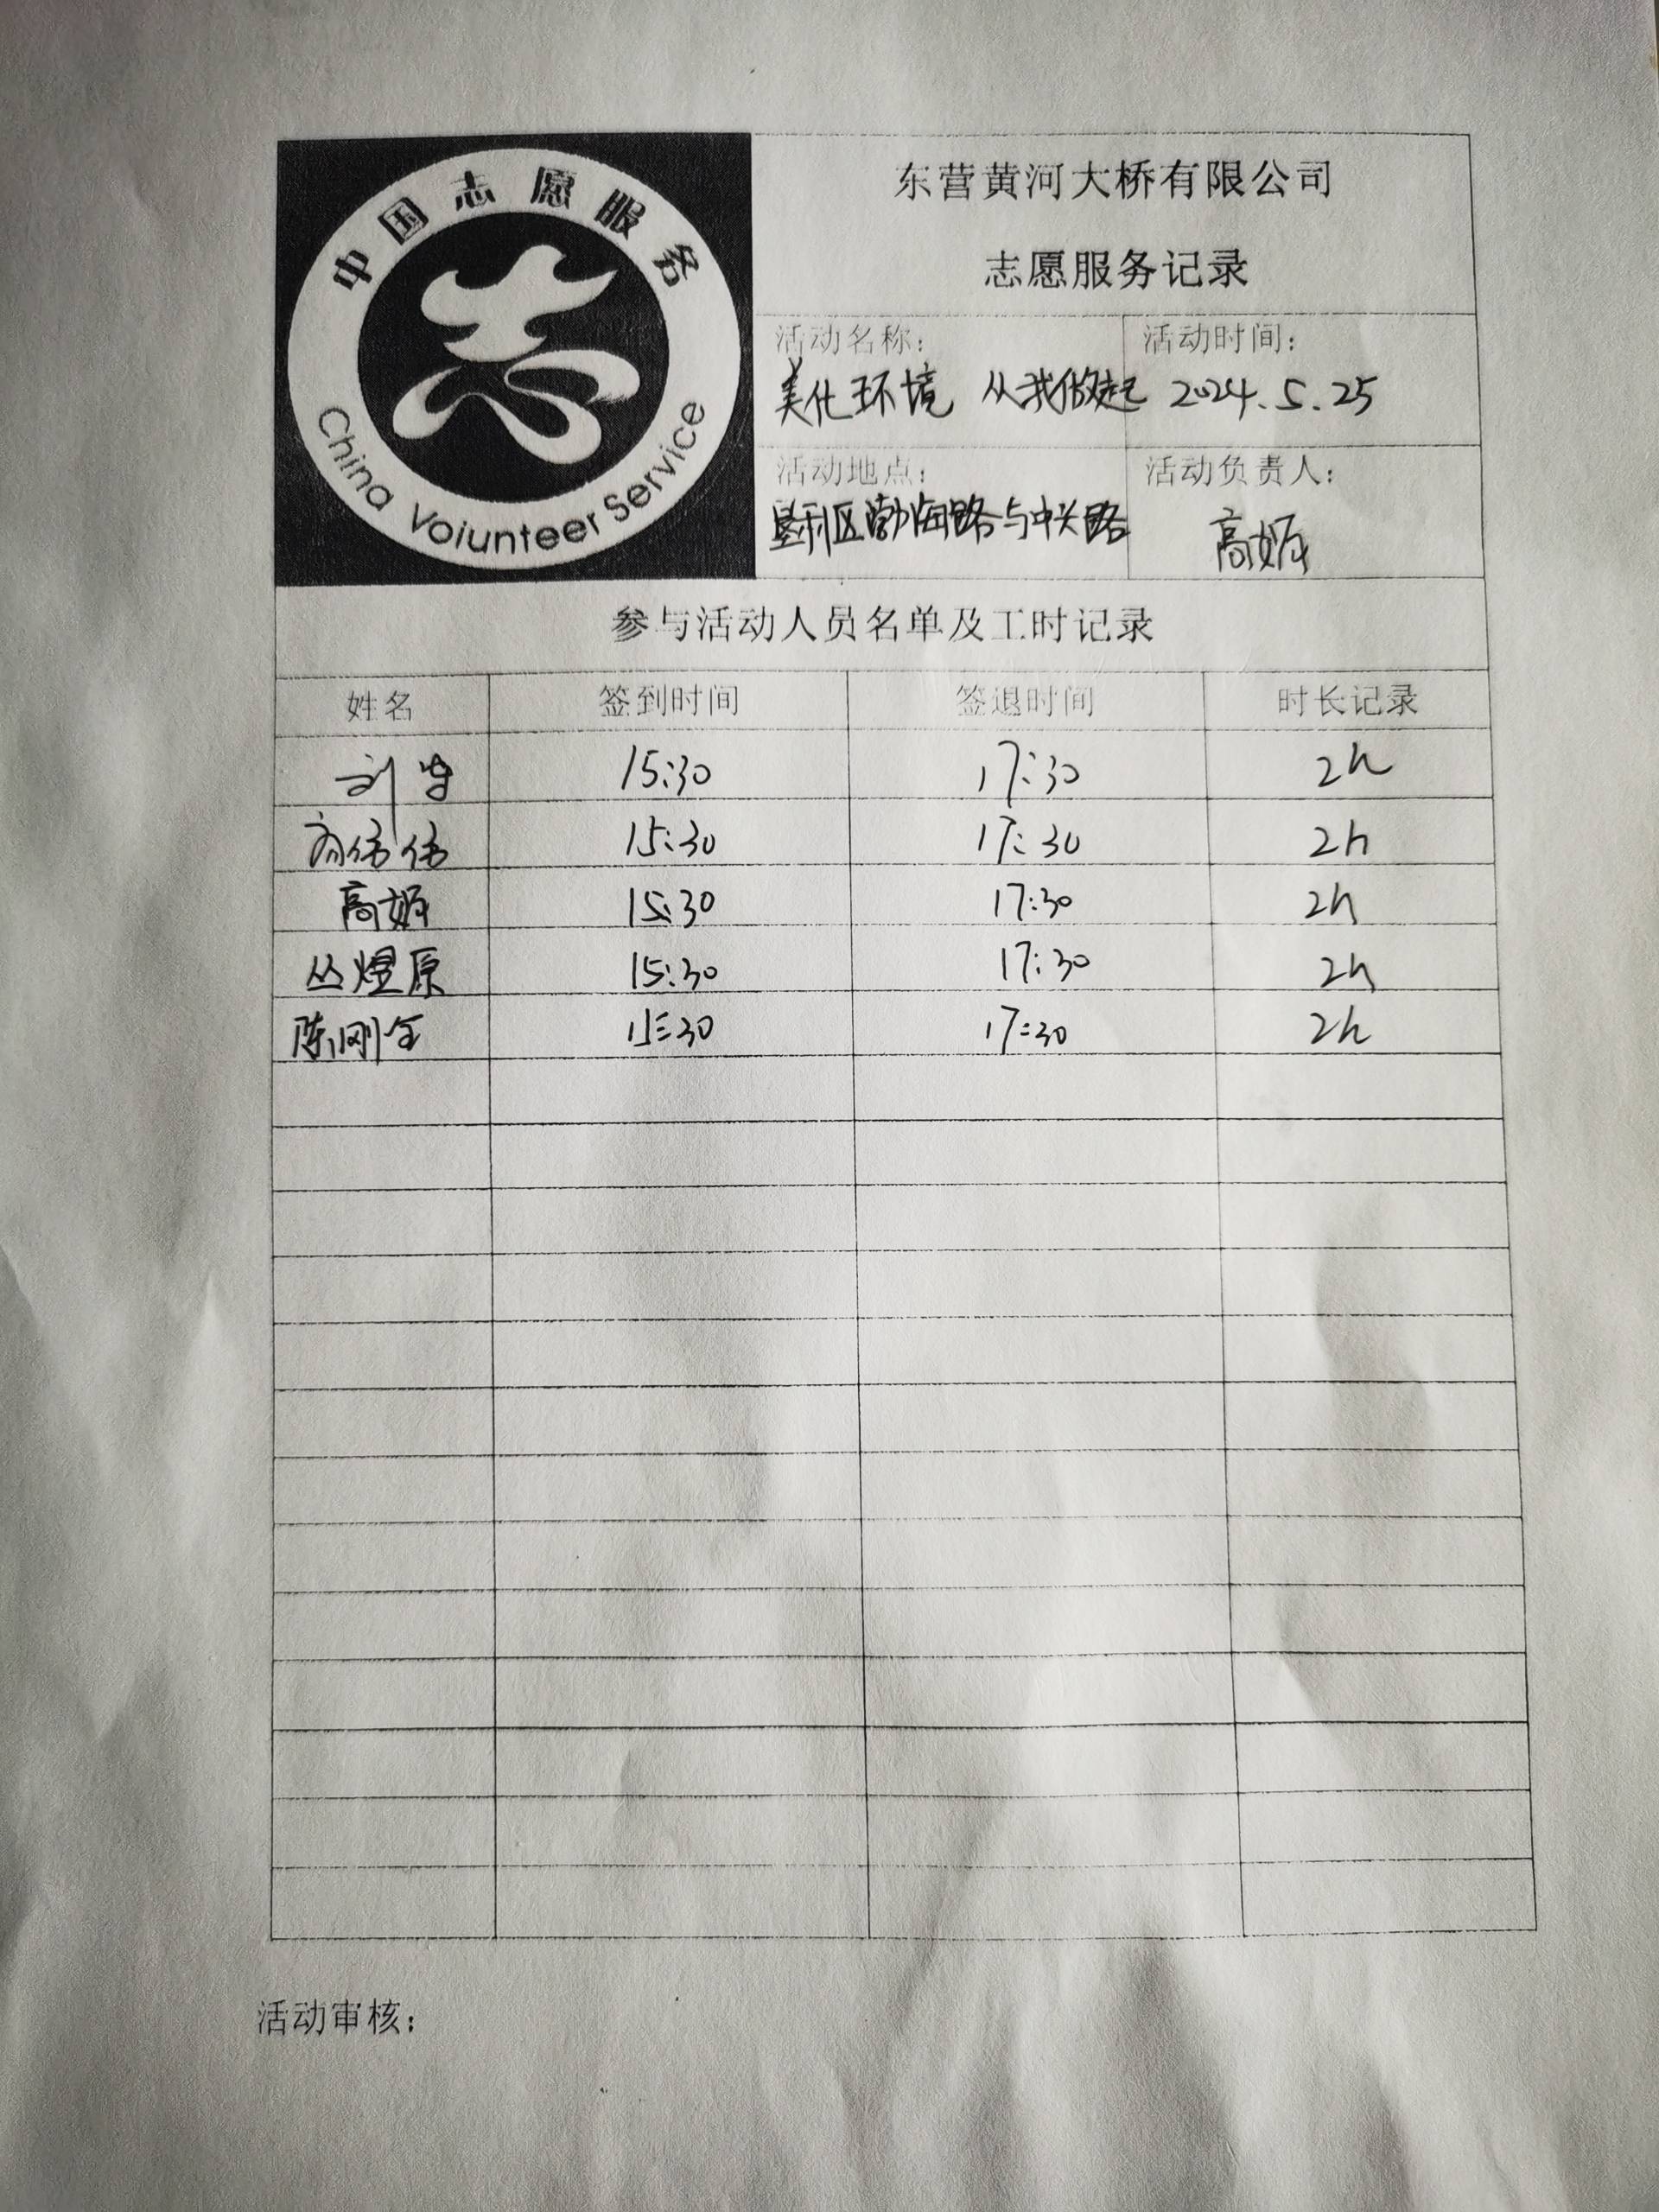 中国志愿服务
China Voiunteer Service
东营黄河大桥有限公司
志愿服务记录
活动名称：
美化环境 从我做起
活动时间：
2024.5.25
活动地点：
垦利区渤海路与中兴路
活动负责人：
高娟
参与活动人员名单及工时记录
姓名 签到时间 签退时间 时长记录
刘 15:30 17:30 2h
伟伟 15:30 17:30 2h
高娟 15:30 17:30 2h
丛煜原 15:30 17:30 2h
陈刚全 15:30 17:30 2h
活动审核：